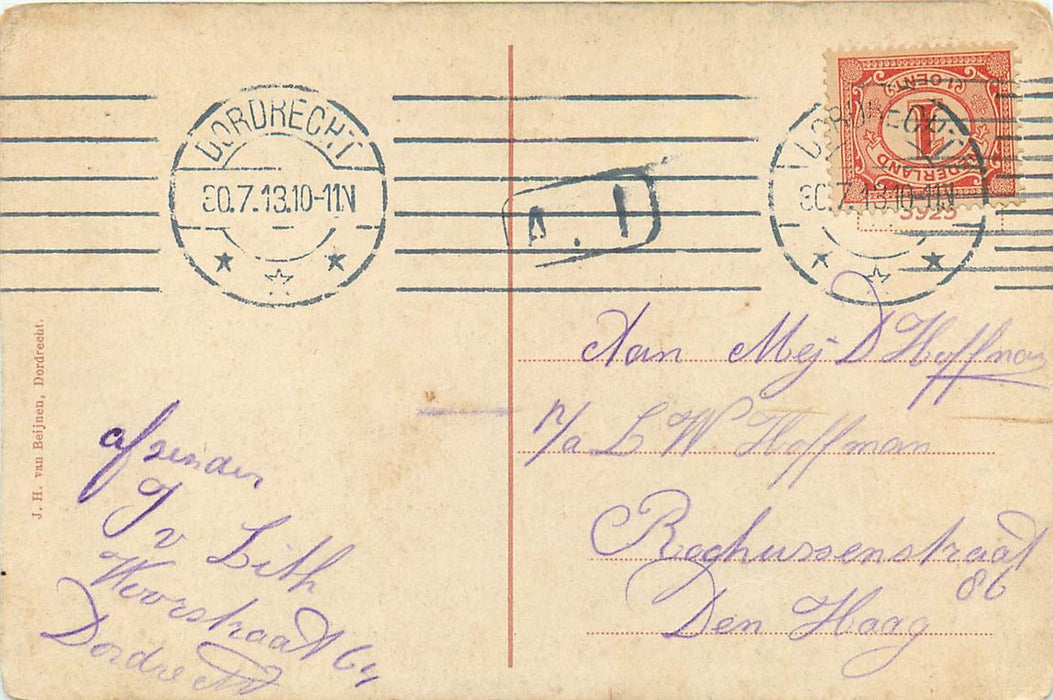 DORDRECHT
30.7.13.10-11N
DORDRECHT
30.7.13.10-11N
1 CENT
1
NEDERLAND
3925
A.I
J. H. van Beijnen, Dordrecht.
Aan Mej D Hoffman
p/a L W Hoffman
Roghussenstraat
86
Den Haag
afzender
J v Lith
Voorstraat 64
Dordrecht